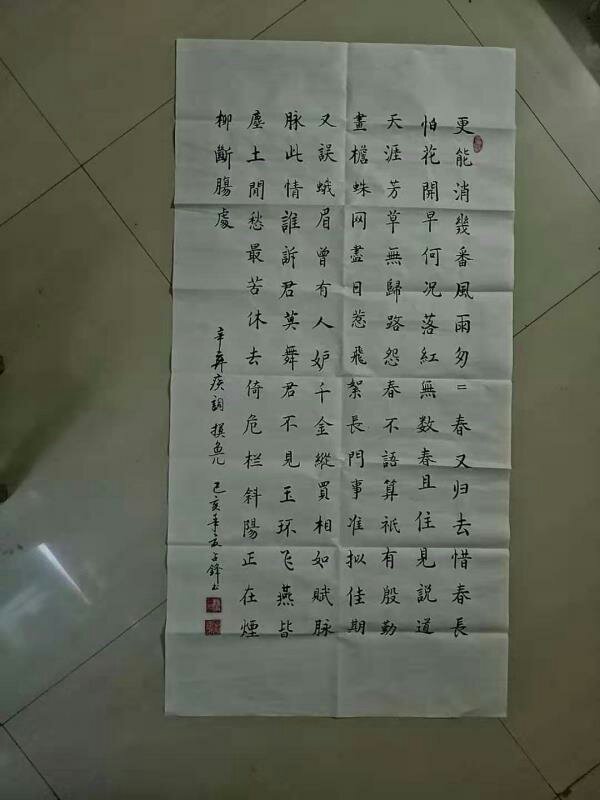 更能消幾番風雨匆=春又归去惜春長
怕花開早何况落紅無数春且住見説道
天涯芳草無歸路怨春不語算祇有殷勤
畫檐蛛网盡日惹飛絮長門事准拟佳期
又誤蛾眉曾有人妒千金縱買相如賦脉
脉此情誰訴君莫舞君不見玉环飞燕皆
塵土閒愁最苦休去倚危栏斜陽正在煙
柳斷腸處
辛弃疾詞 摸鱼儿 己亥年 鋒书